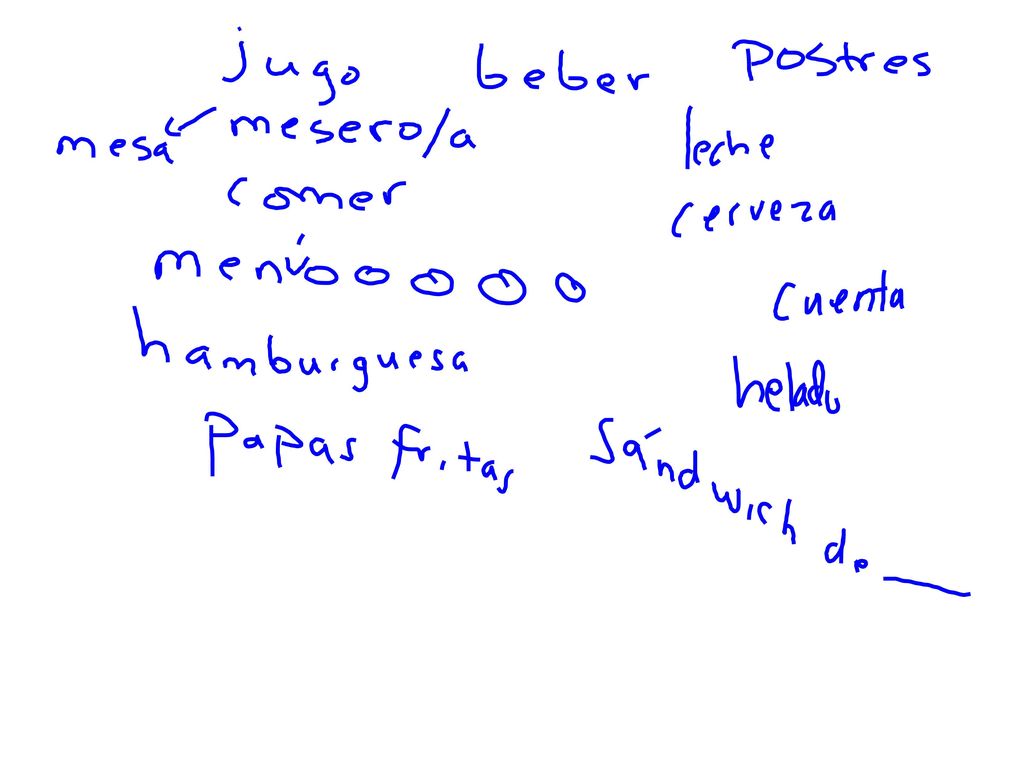 jugo beber postres
mesa mesero/a leche
comer cerveza
menú
cuenta
hamburguesa
helado
papas fritas sándwich de ___